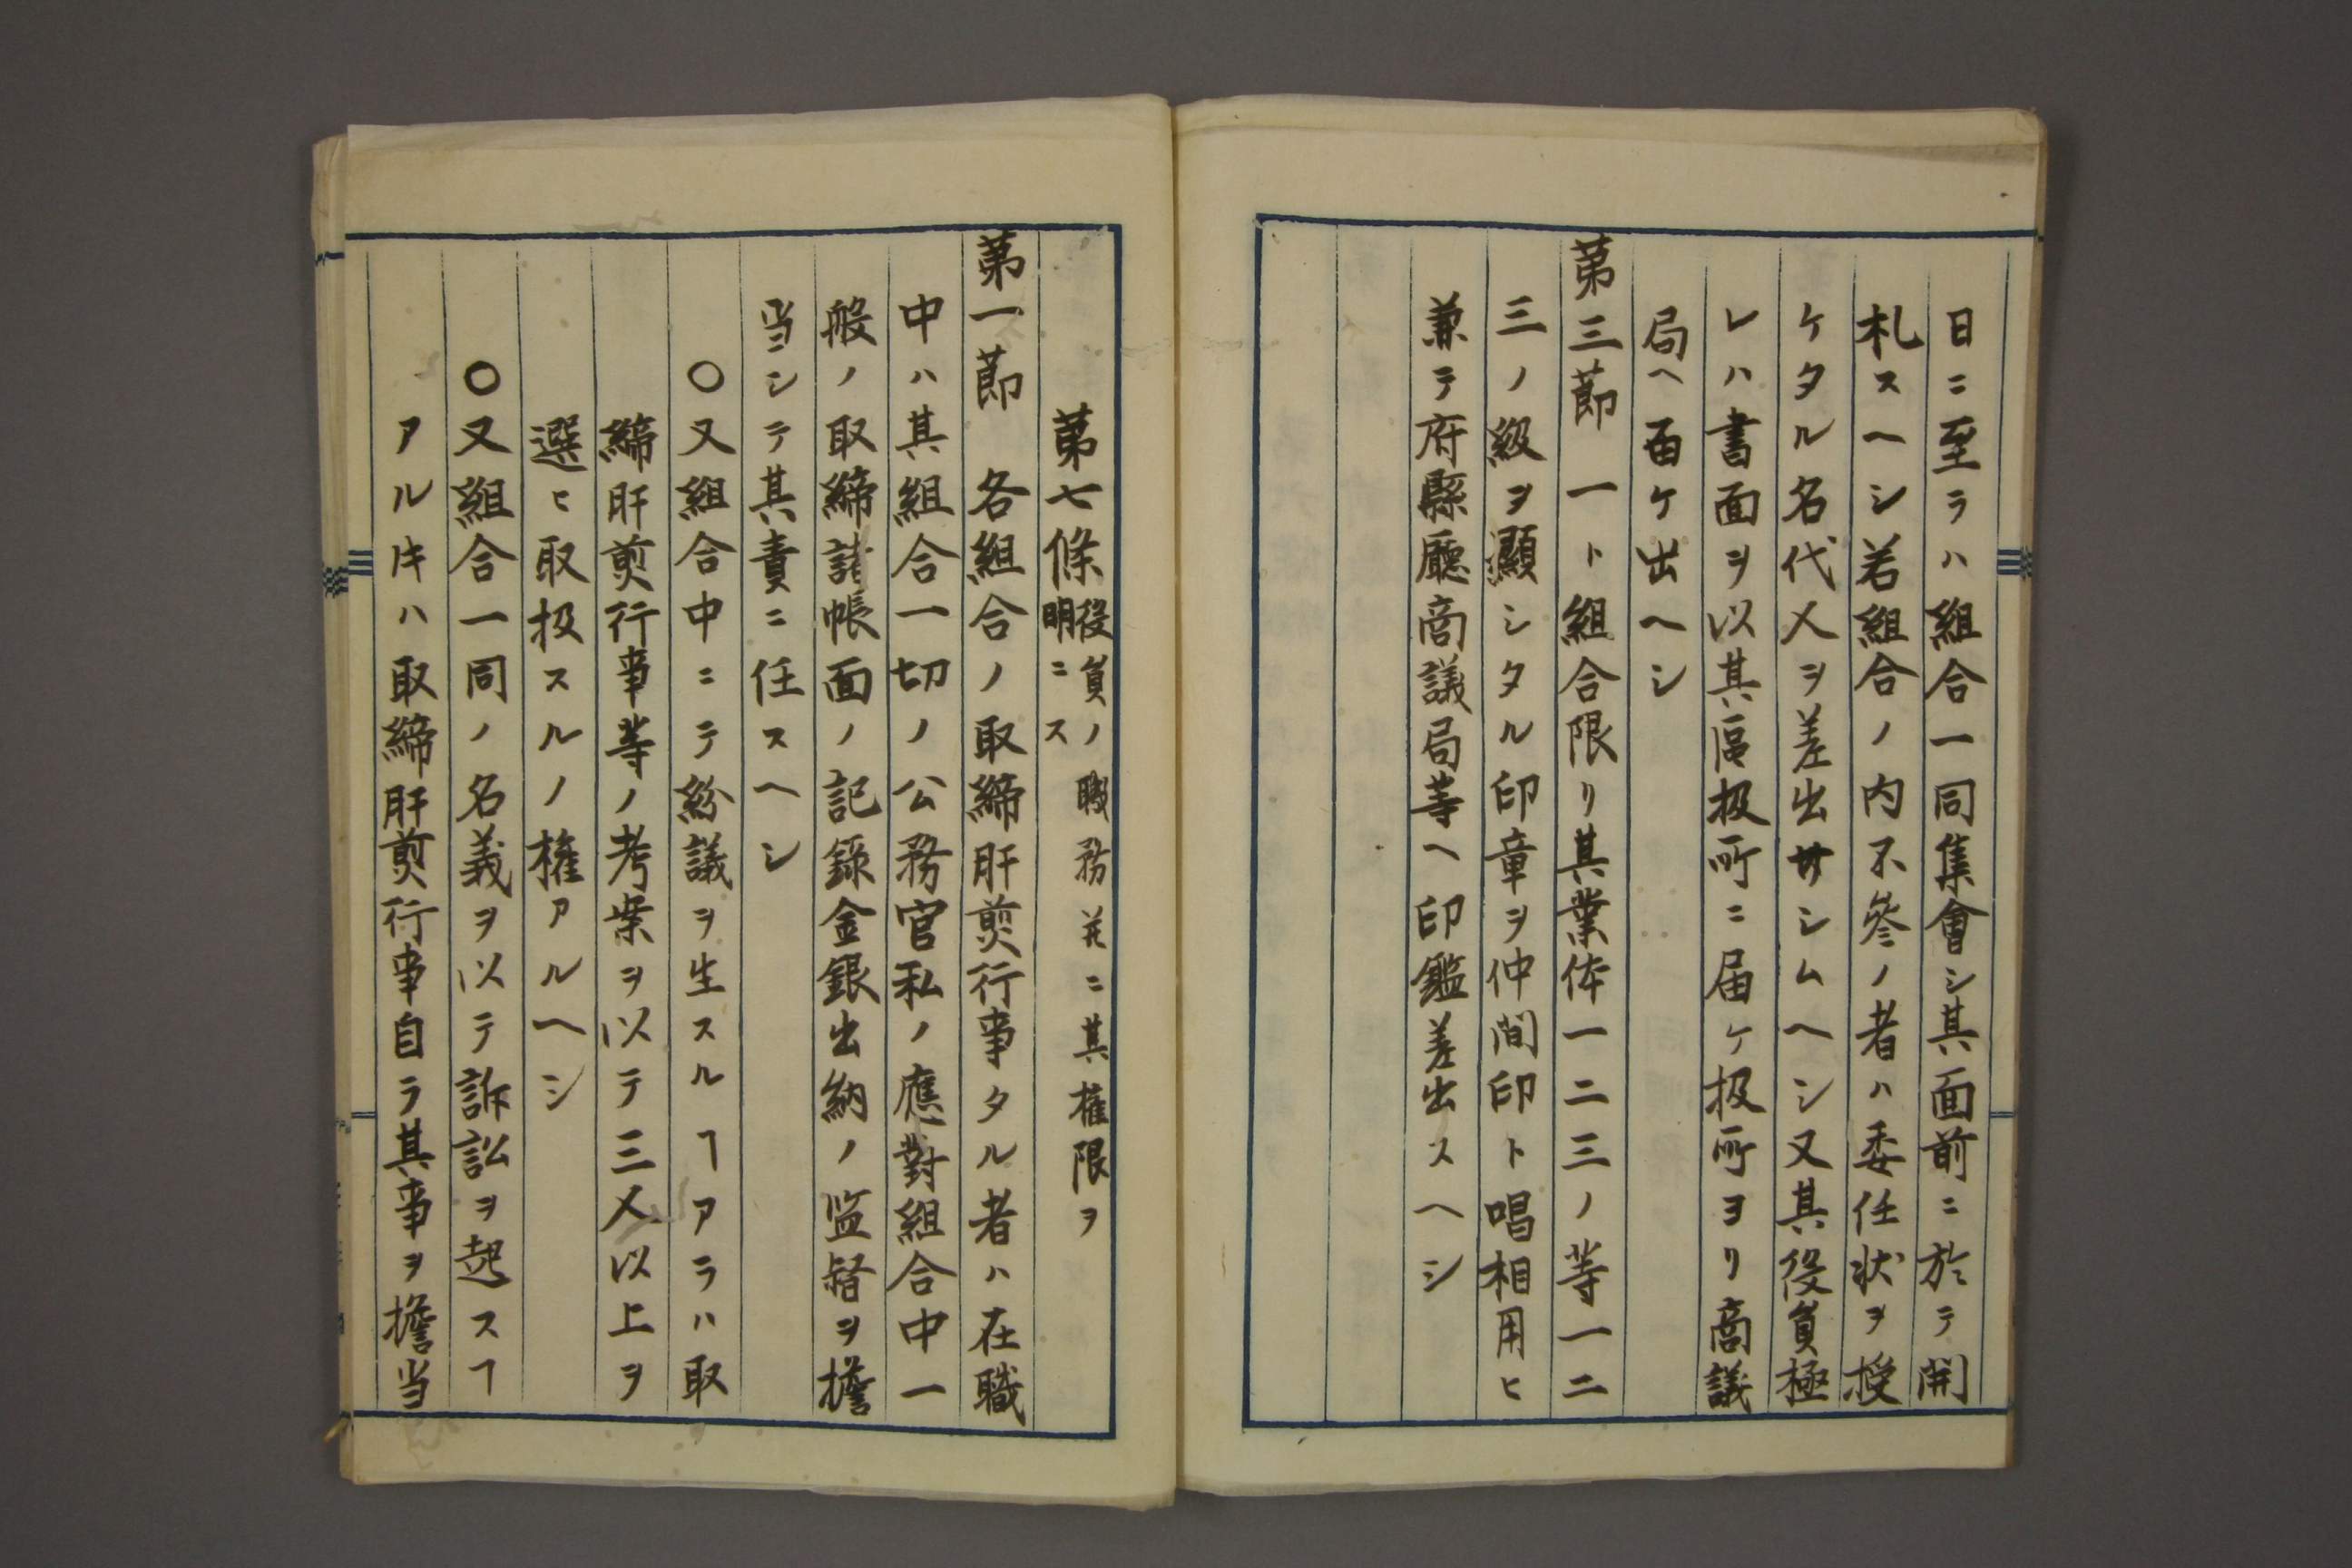 日ニ至ラハ組合一同集會シ其面前ニ於テ開
札スヘシ若組合ノ内不參ノ者ハ委任状ヲ授
ケタル名代人ヲ差出サシムヘシ又其役員極
レハ書面ヲ以其區扱所ニ届ケ扱所ヨリ商議
局ヘ届ケ出ヘシ
第三節 一ト組合限リ其業体一二三ノ等一二
三ノ級ヲ顯シタル印章ヲ仲間印ト唱相用ヒ
兼テ府縣廳商議局等ヘ印鑑差出スヘシ
第七條 役員ノ職務并ニ其權限ヲ
明ニス
第一節 各組合ノ取締肝煎行事タル者ハ在職
中ハ其組合一切ノ公務官私ノ應對組合中一
般ノ取締諸帳面ノ記録金銀出納ノ監督ヲ擔
当ニシテ其責ニ任スヘシ
〇又組合中ニテ紛議ヲ生スルヿアラハ取
締肝煎行事等ノ考案ヲ以テ三人以上ヲ
選ヒ取扱スルノ權アルヘシ
〇又組合一同ノ名義ヲ以テ訴訟ヲ起スヿ
アルキハ取締肝煎行事自ラ其事ヲ擔当